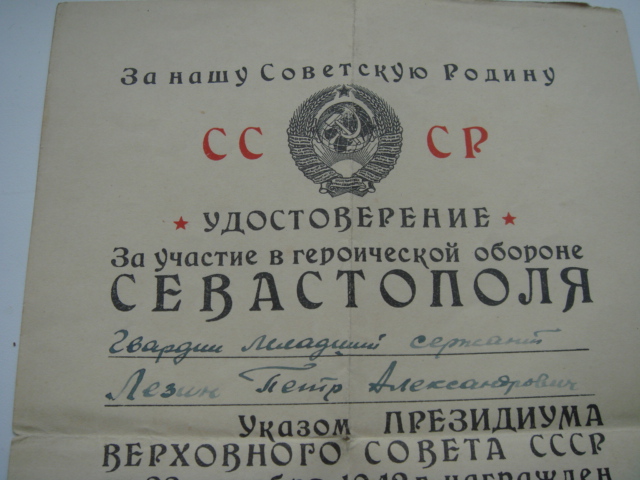 За нашу Советскую Родину
СС СР
УДОСТОВЕРЕНИЕ
За участие в героической обороне
СЕВАСТОПОЛЯ
Гвардии младший сержант
Лезин Петр Александрович
Указом ПРЕЗИДИУМА
ВЕРХОВНОГО СОВЕТА СССР
22 1942 г. награжден